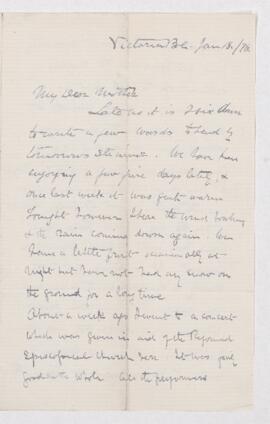 Victoria B.C. Jan 31/76
My Dear Mother
Late as it is I sit down
to write a few words to send by
tomorrows steamer. We have been
enjoying a few fine days lately, &
once last week it was quite warm
Tonight however the wind
& the rain coming down again. We
have a little frost occasionally at
night but have not had any snow on
the ground for a long time
About a week ago I went to a concert
which was given in aid of the Reformed
Episcopal Church here. It was
good on the whole all the performers